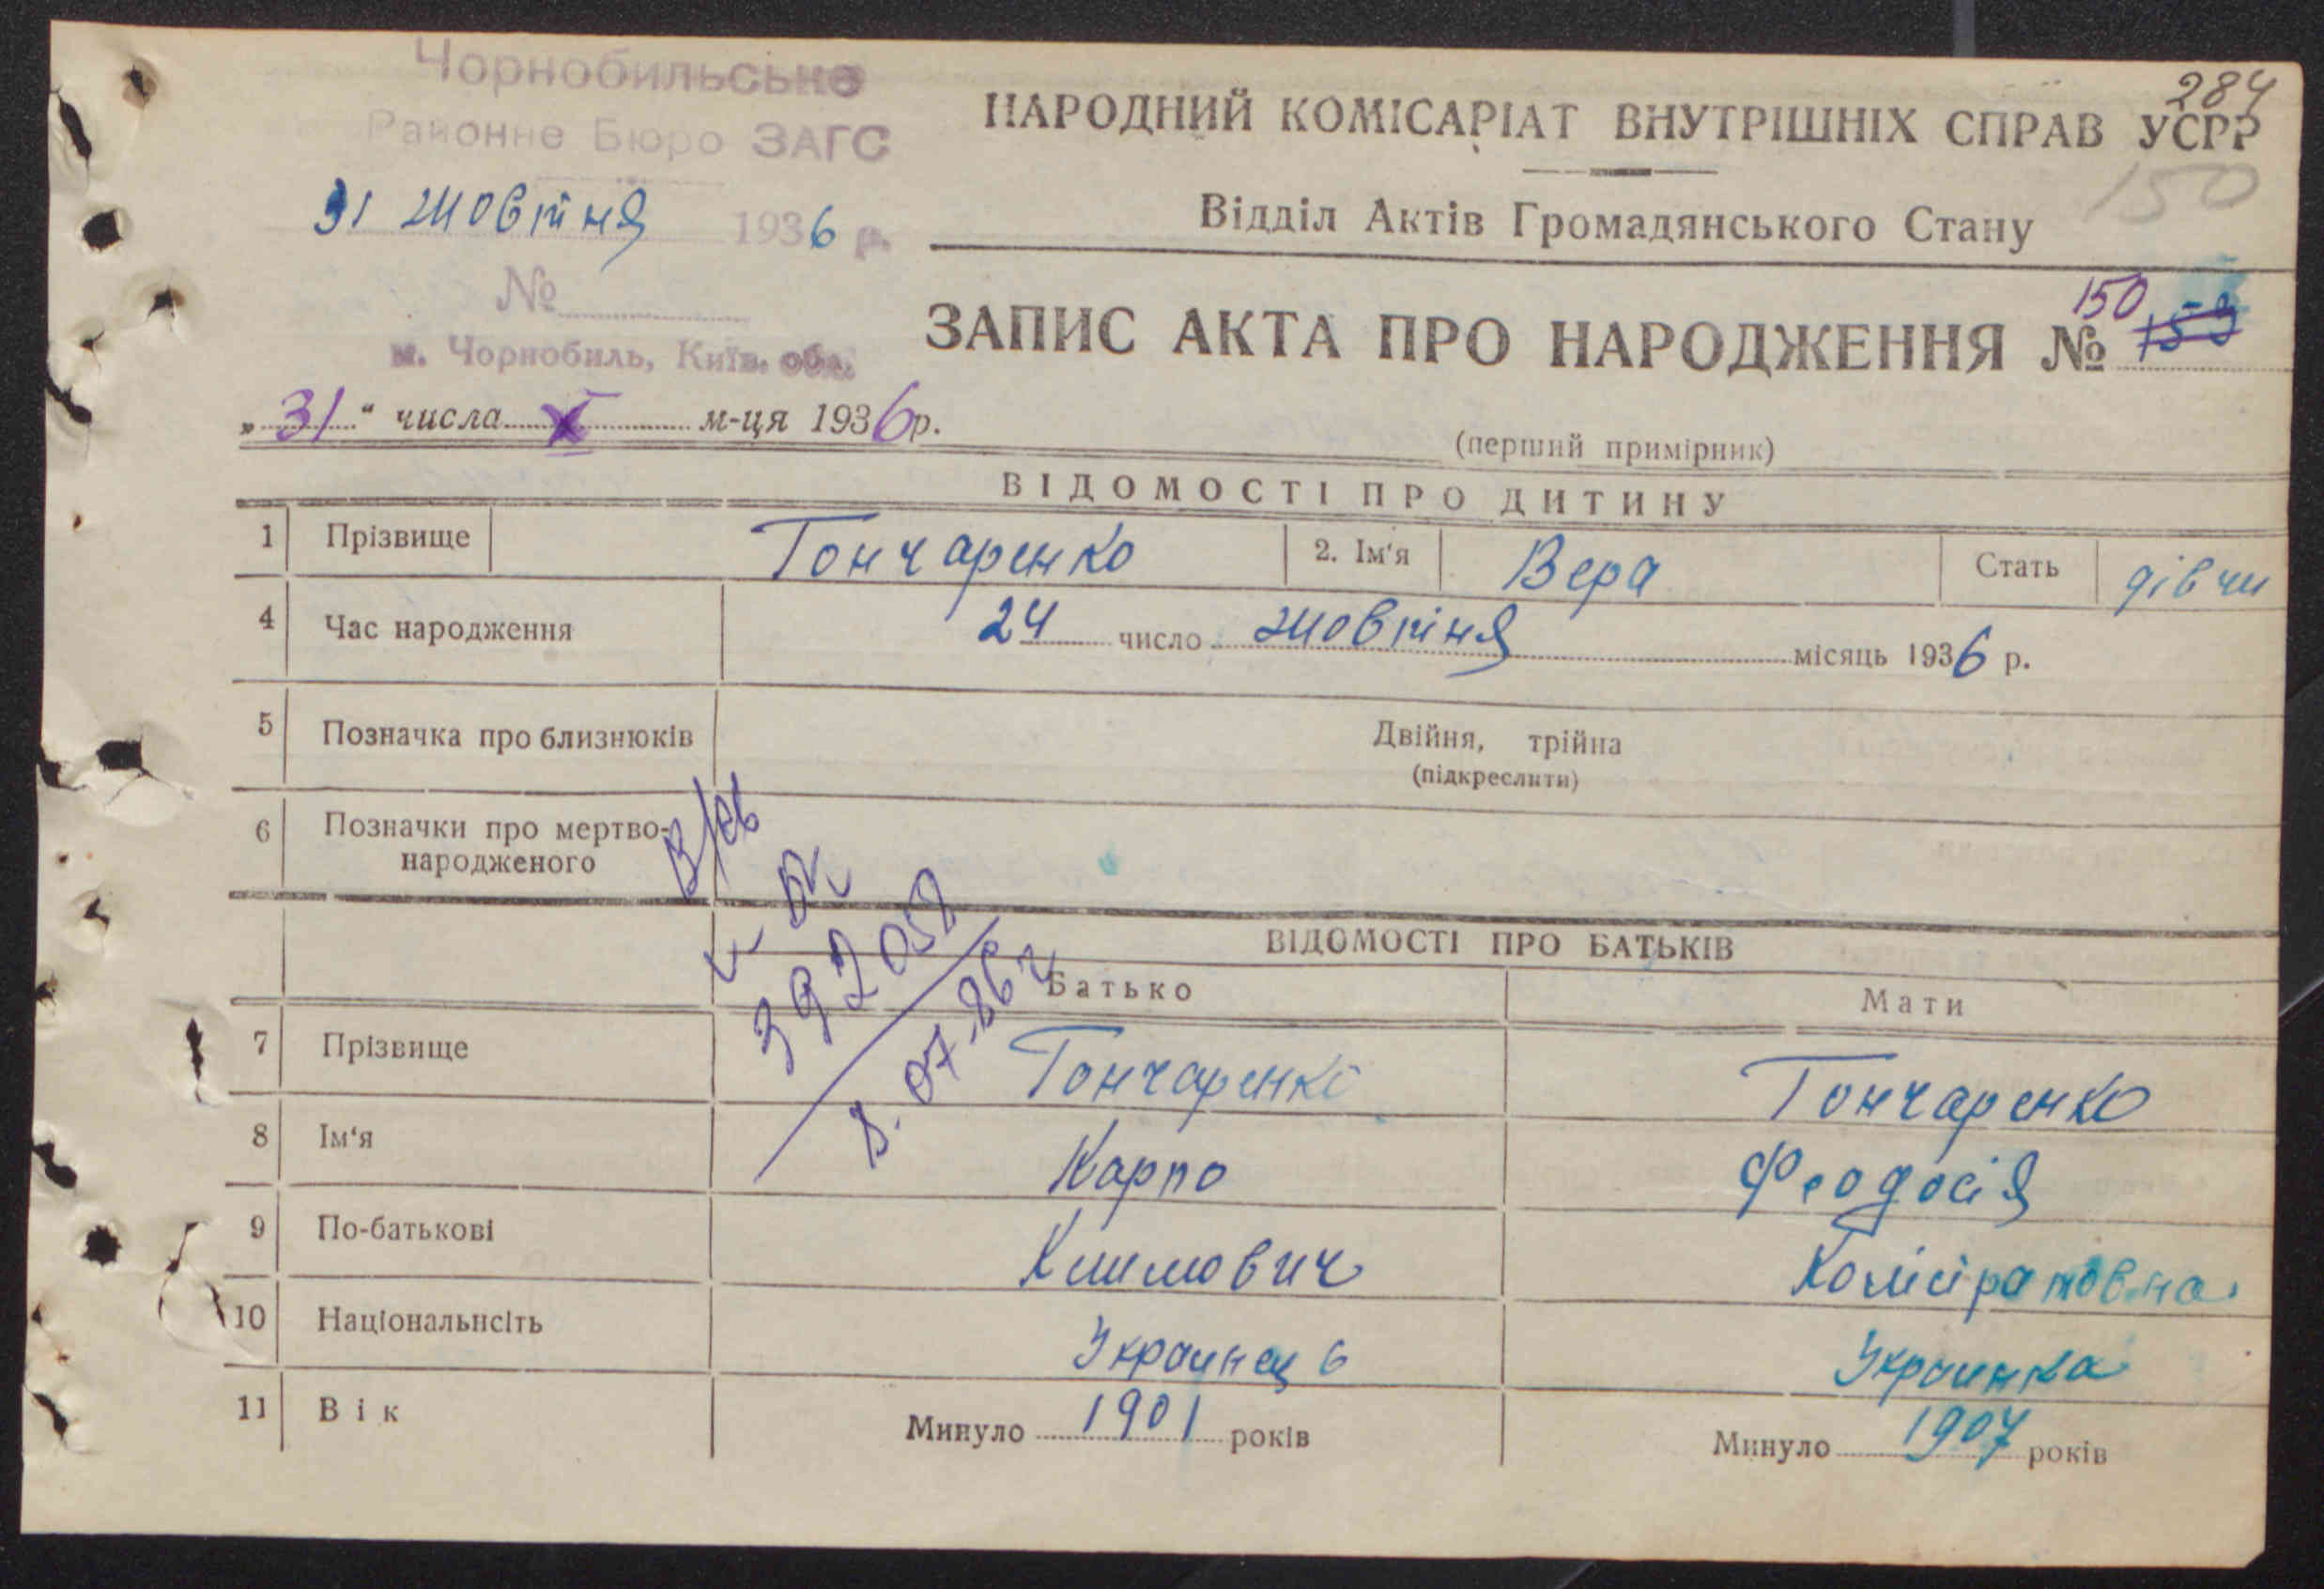 284
Чорнобильське
Районне Бюро ЗАГС
31 жовтня 1936 р.
№
м. Чорнобиль, Київ. обл.
"31" числа X м-ця 1936 р.
НАРОДНИЙ КОМІСАРІАТ ВНУТРІШНІХ СПРАВ УСРР
150
Відділ Актів Громадянського Стану
ЗАПИС АКТА ПРО НАРОДЖЕННЯ № 150 153
(перший примірник)
ВІДОМОСТІ ПРО ДИТИНУ
1 Прізвище Гончаренко 2. Ім'я Вера Стать дівчи
4 Час народження 24 число жовтня місяць 1936 р.
5 Позначка про близнюків Двійня, трійна
(підкреслити)
6 Позначки про мертво-
народженого
ВІДОМОСТІ ПРО БАТЬКІВ
Батько Мати
7 Прізвище Гончаренко Гончаренко
8 Ім'я Карпо Феодосія
9 По-батькові Климович
10 Національнсіть Украинец Украинка
11 Вік Минуло 1901 років Минуло 1907 років
8.07.86 г